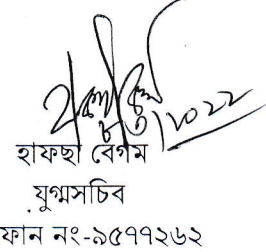 হাফছা বেগম
যুগ্মসচিব
ফোন নং-৯৫৭৭২৬২